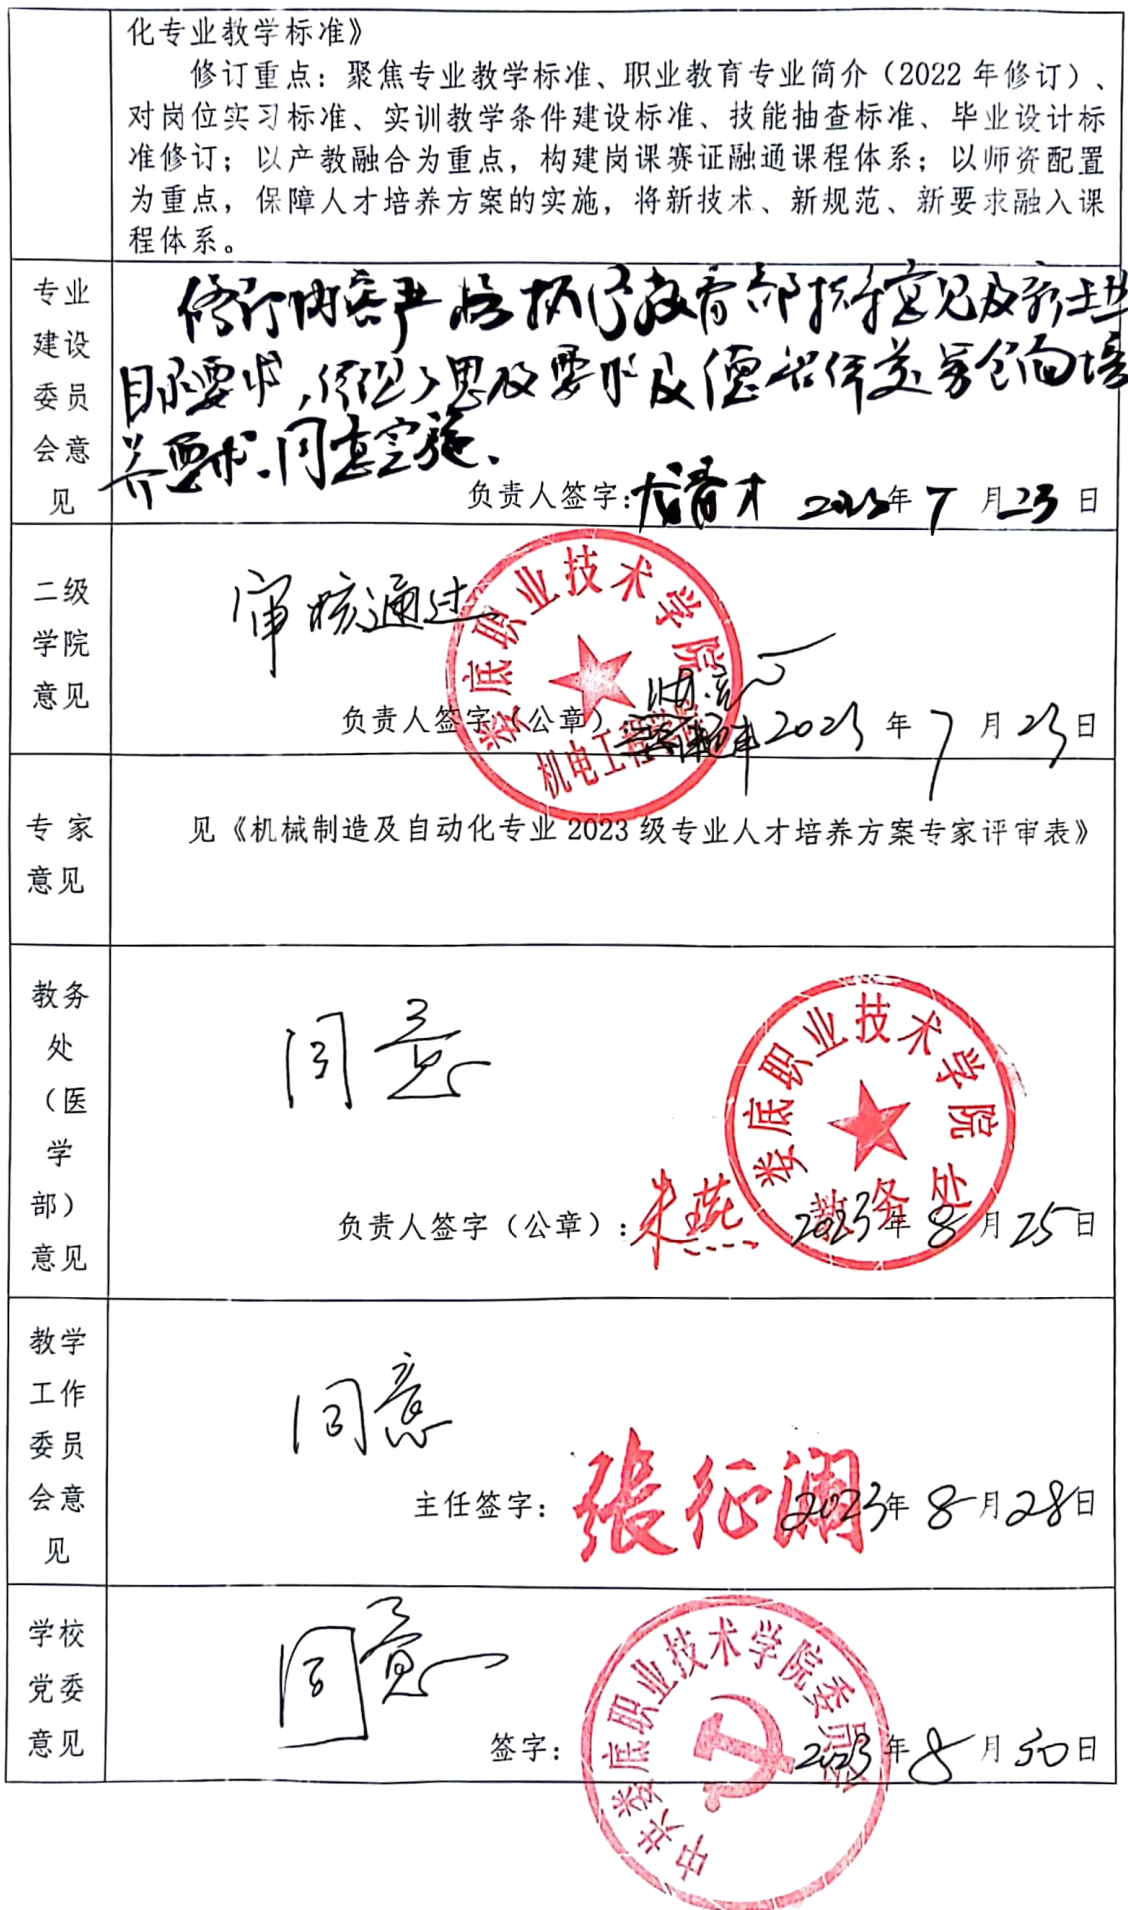 化专业教学标准》
修订重点：聚焦专业教学标准、职业教育专业简介（2022年修订）、
对岗位实习标准、实训教学条件建设标准、技能抽查标准、毕业设计标
准修订；以产教融合为重点，构建岗课赛证融通课程体系；以师资配置
为重点，保障人才培养方案的实施，将新技术、新规范、新要求融入课
程体系。
专业
建设
委员
会意
见
修订内容严格执行教育部指导意见及新专业
目录要求，体现了思政要求及德智体美劳全面培
养要求、同意实施、
负责人签字： 2023年7月23日
二级
学院
意见
审核通过
娄底职业技术学院
机电工程学院
负责人签字（公章）： 2023年7月23日
专家
意见
见《机械制造及自动化专业2023级专业人才培养方案专家评审表》
教务
处
（医
学
部）
意见
同意
娄底职业技术学院
教务处
负责人签字（公章）：朱燕 2023年8月25日
教学
工作
委员
会意
见
同意
主任签字：张征澜 2023年8月28日
学校
党委
意见
同意
签字： 2023年8月30日
中共娄底职业技术学院委员会